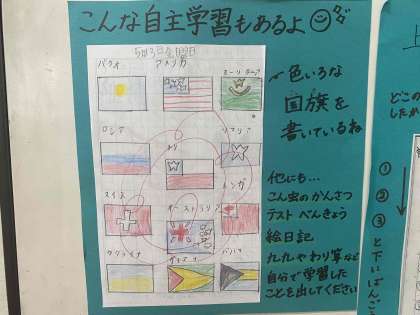 こんな自主学習もあるよ
5月3日金曜日
パラオ
アメリカ
モーリタニア
ロシア
ソマリア
チリ
スイス
トンガ
オーストラリア
ウクライナ
ガイアナ
バハマ
色いろな
国旗を
書いているね
他にも…
こん虫のかんさつ
テストべんきょう
絵日記
九九やわり算など
自分で学習した
ことを出してください
どこの
したか
①
②
③
と下いばんご